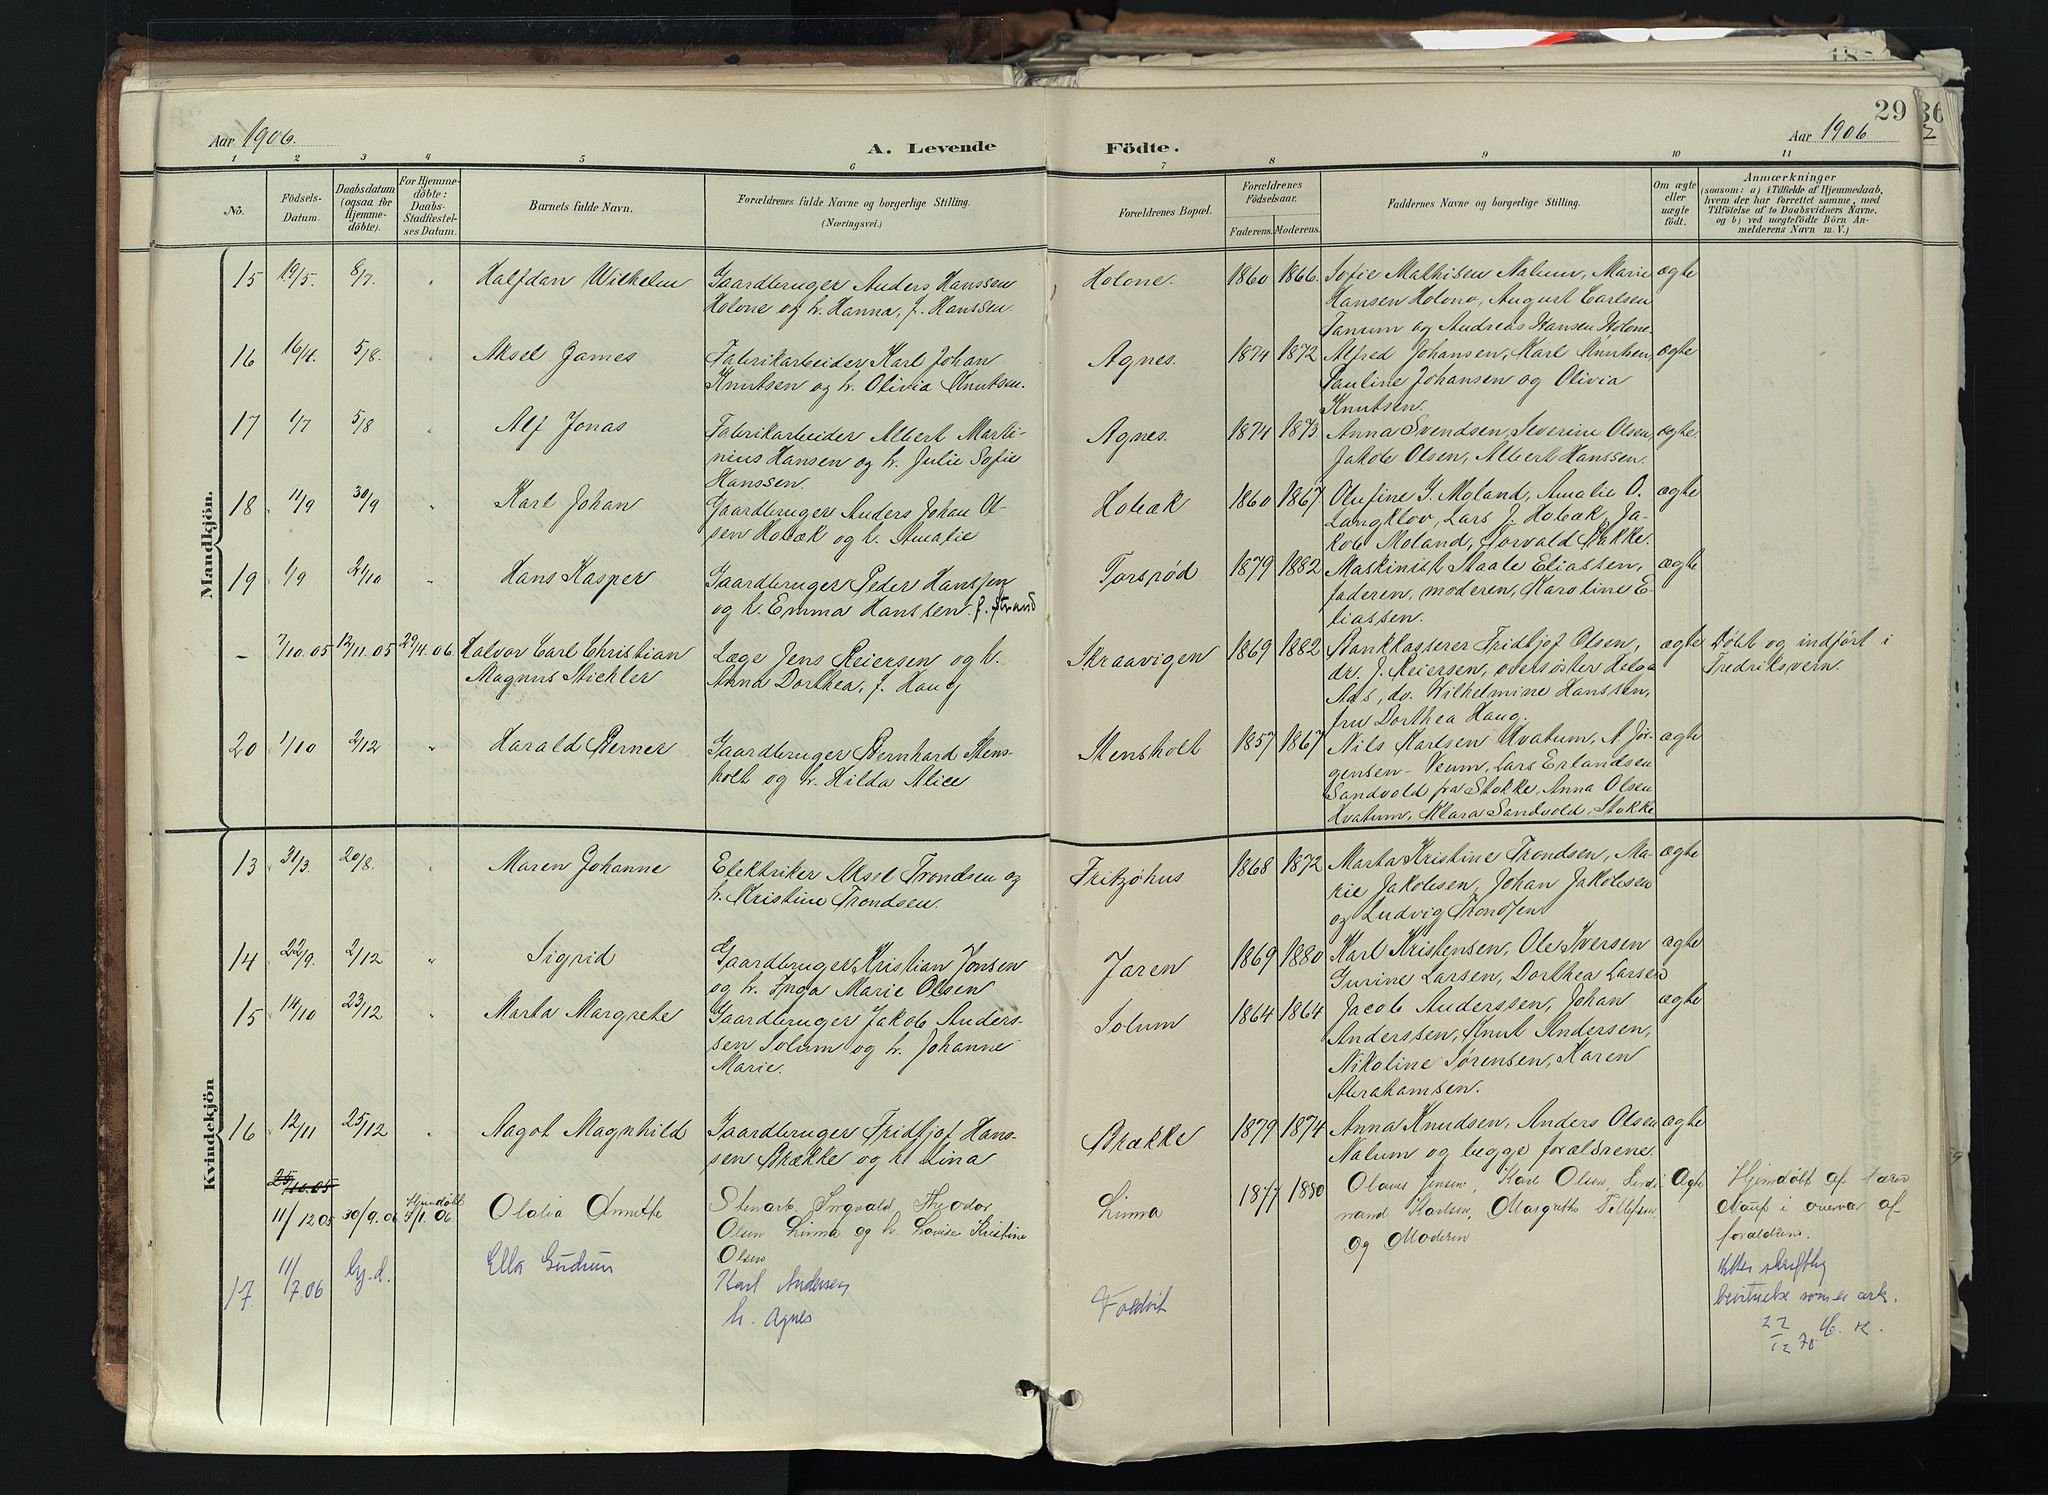 29
Aar 1906.
A. Levende Födte.
Aar 1906
1 2 3 4 5 6 7 8 9 10 11
No.
Födsels-Datum.
Daabsdatum (ogsaa for Hjemmedöbte).
For Hjemmedöbte: Daabs-Stadfæstelses Datum.
Barnets fulde Navn.
Forældrenes fulde Navne og borgerlige Stilling.
(Næringsvei.)
Forældrenes Bopæl.
Forældrenes Födselsaar.
Faderens. Moderens.
Faddernes Navne og borgerlige Stilling.
Om ægte eller uægte födt.
Anmærkninger
(saasom: a) i Tilfælde af Hjemmedaab, hvem der har forrettet samme, med Tilföielse af to Daabsvidners Navne, og b) ved uægtefödte Börn Anmelderens Navn m. V.)
Mandkjön.
15 19/5. 8/7. " Halfdan Wilhelm
Gaardbruger Anders Hanssen
Holone og h. Hanna, f. Hanssen.
Holone. 1860 1866.
Sofie Mathisen Nalum, Marie
Hansen Holone, August Carlsen
Tanum og Andreas Hansen Holone.
ægte
16 16/4. 5/8. " Aksel James
Fabrikarbeider Karl Johan
Knutsen og h. Olivia Knutsen.
Agnes. 1874 1872
Alfred Johansen, Karl Knutsen,
Pauline Johansen og Olivia
Knutsen.
ægte
17 1/7 5/8 " Alf Jonas
Fabrikarbeider Albert Marti-
nius Hansen og h. Julie Sofie
Hanssen.
Agnes. 1874 1873
Anna Svendsen, Severine Olsen,
Jakob Olsen, Albert Hanssen.
ægte.
18 11/9 30/9 " Karl Johan
Gaardbruger Anders Johan Ol-
sen Hobæk og h. Amalie
Hobæk 1860 1867
Olufine G. Moland, Amalie O.
Langklov, Lars J. Hobæk, Ja-
kob Moland, Torvald Bakke.
ægte
19 1/9 21/10 " Hans Kasper
Gaardbruger Peder Hanssen
og h. Emma Hanssen f. Strand
Torsrød 1879 1882
Maskinist Staale Eliassen,
faderen, moderen, Karoline E-
liassen.
ægte
- 7/10.05 12/11.05 29/4.06. Halvor Carl Christian
Magnus Stichler
Læge Jens Reiersen og h.
Anna Dorthea, f. Haug
Skraavigen 1869 1882
Bankkasserer Fridtjof Olsen,
dr. J. Reiersen, oversøster Helga
Aas, do. Wilhelmine Hanssen,
fru Dorthea Haug.
ægte
Døbt og indført i
Fredriksvern.
20 1/10 2/12 " Harald Berner
Gaardbruger Bernhard Stens-
holt og h. Hilda Alice
Stensholt 1857 1867
Nils Karlsen Hvatum, A. Jør-
gensen - Veum, Lars Erlandsen
Sandvold fra Stokke, Anna Olsen
Hvatum, Klara Sandvold, Stokke
ægte
Kvindekjön
13 31/3 20/8. " Maren Johanne
Elektriker Aksel Trondsen og
h. Kristine Trondsen.
Fritzøhus 1868 1872
Marta Kristine Trondsen, Ma-
rie Jakobsen, Johan Jakobsen
og Ludvig Trondsen
ægte
14 22/9. 2/12 " Sigrid
Gaardbruger Kristian Jonsen
og h. Inga Marie Olsen
Jaren 1869 1880
Karl Kristensen, Ole Iversen
Gurine Larsen, Dorthea Larsen
ægte
15 14/10 23/12 " Marta Margrete
Gaardbruger Jakob Anders-
sen Solum og h. Johanne
Marie.
Solum 1864 1864
Jacob Anderssen, Johan
Anderssen, Knut Andersen,
Nikoline Sørensen, Karen
Abrahamsen.
ægte
16 12/11 25/12 " Aagot Magnhild
Gaardbruger Fridtjof Hans-
sen Brække og h. Lina
Brække 1879 1874
Anna Knudsen, Anders Olsen
Nalum og begge forældrene.
ægte
11/12 05 30/9.06 Hjemdøbt 7/1.06. Olalia Annette
Stenarb. Ingvald Theodor
Olsen Linma og h. Lovise Kristine
Olsen
Linma 1877 1880
Olaus Jensen, Karl Olsen, Ferdi-
nand Karlsen, Margrethe Tellefsen,
og Moderen.
Ægte
Hjemdøbt af lærer
i overvær af
forældrene.
17. 11/7.06 Gj.d. Ella Gudrun
Karl Andersen
h. Agnes
Foldvik
Etter skriftlig
bevitnelse som er ark.
22/12 70